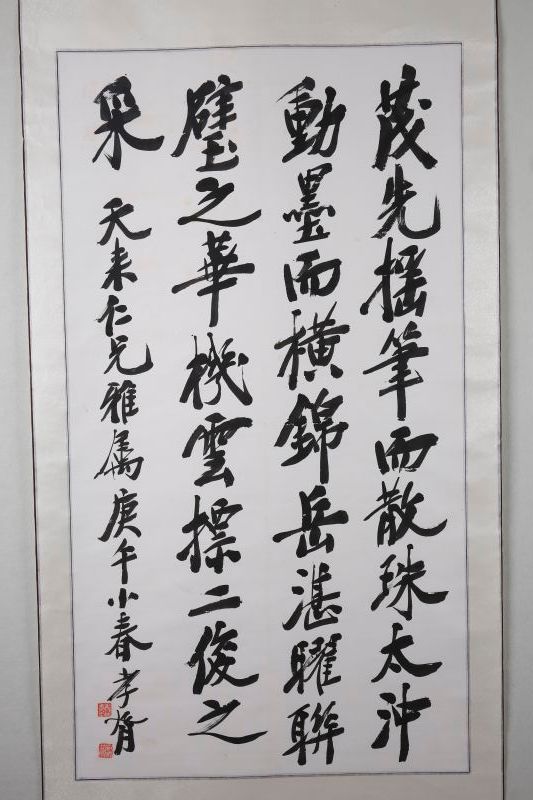 茂先摇筆而散珠太沖
動墨而横錦岳湛曜聯
璧之華機雲摽二俊之
采 天来仁兄雅属庚午小春孝胥